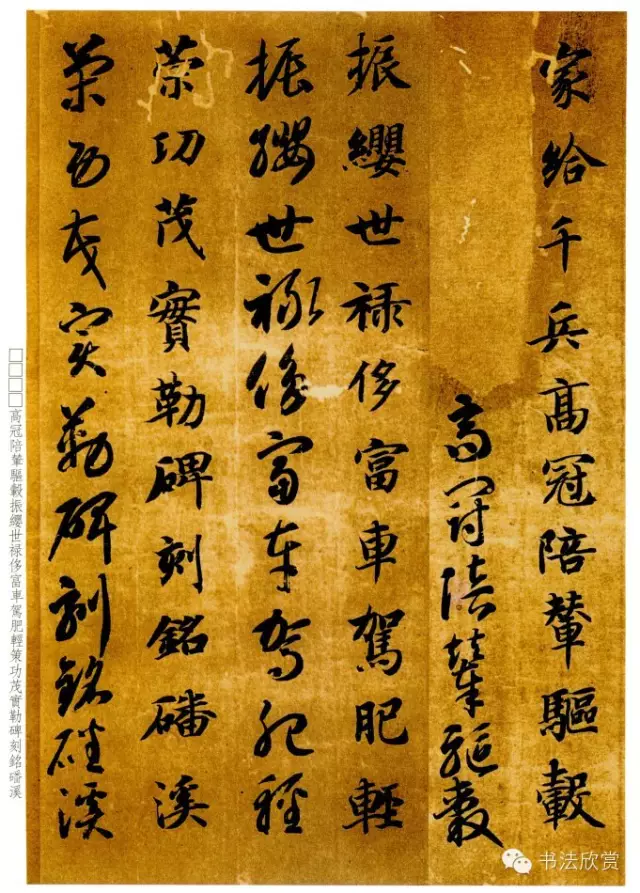 家給千兵高冠陪輦驅轂
高冠陪輦驅轂
振纓世禄侈富車駕肥輕
振纓世禄侈富車駕肥輕
策功茂實勒碑刻銘磻溪
策功茂實勒碑刻銘磻溪
□□□□高冠陪輦驅轂振纓世禄侈富車駕肥輕策功茂實勒碑刻銘磻溪
书法欣赏